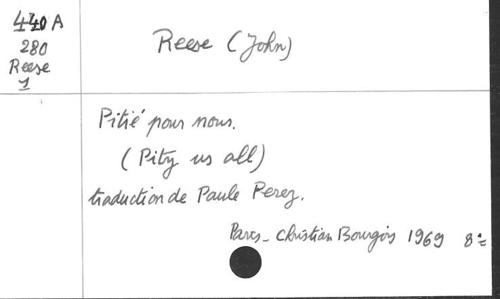 440 A
280
Reese
1
Reese (John)
Pitié pour nous.
(Pity us all)
traduction de Paule Perez.
Paris - Christian Bourgois 1969 8°